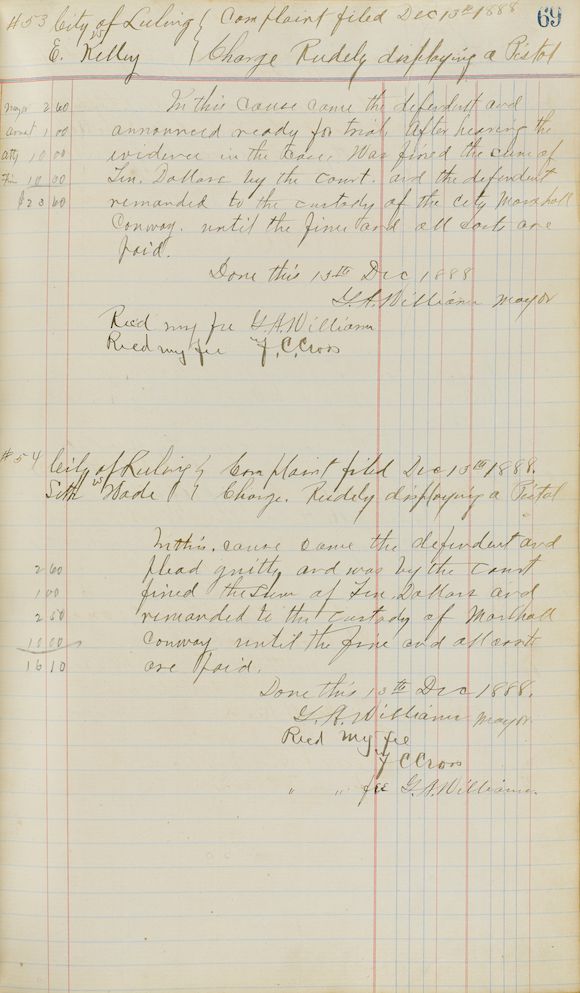 69
#53 City of Luling { Complaint filed Dec 13th 1888
vs
E. Kelley } Charge Rudely displaying a Pistol
Mayor 2 60 In this cause came the defendent and
arrest 1 00 announced ready for trial. After hearing the
atty 10 00 evidence in the case. Was fined the sum of
Fine 10 00 Ten. Dollars by the court. and the defendent
$23 60 remanded to the custody of the City Marshall
Conway. until the fine and all costs are
paid.
Done this 13th Dec 1888
G. A. Williams Mayor
Recd my fee G. A. Williams
Recd my fee J. C. Cross
#54 City of Luling } Complaint filed Dec 13th 1888.
vs
Seth Wade } Charge. Rudely displaying a Pistol
In this. cause came the defendent and
2 60 plead guilty and was by the court
1 00 fined the sum of Ten Dollars and
2 50 remanded to the custody of Marshall
10 00 Conway until the fine and all costs
16 10 are paid.
Done this 13th Dec 1888.
G. A. Williams Mayor
Recd my fee
J C Cross
" " fee G. A. Williams